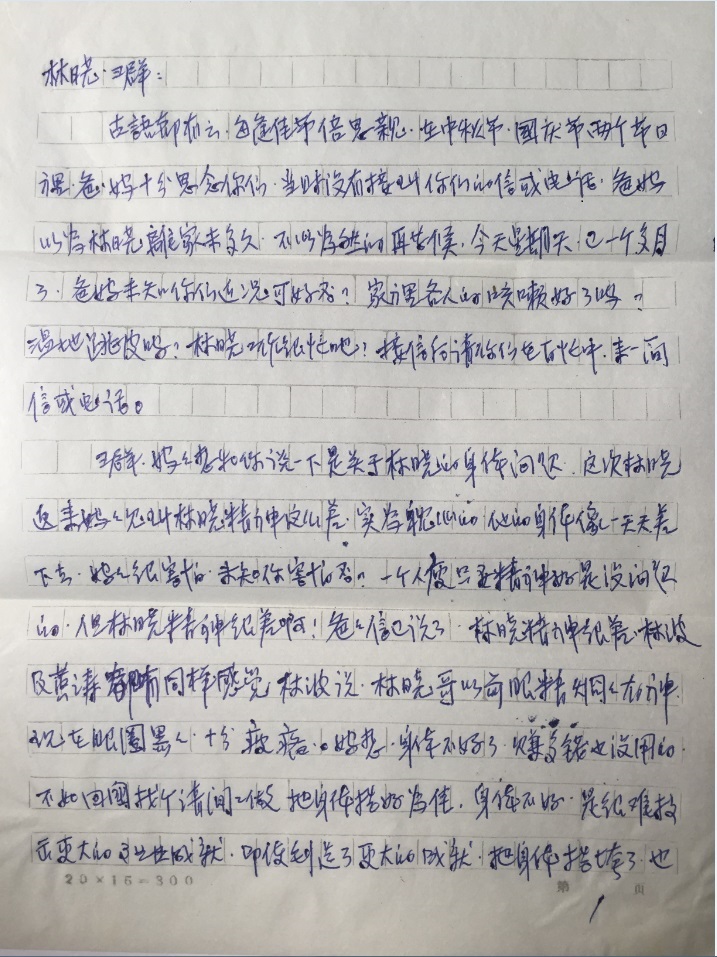 林晓、王群：
古語都有云、每逢佳节倍思親、在中秋节、國庆节两个节日
裡、爸、妈十分思念你们、当时没有接到你们的信或电话、爸妈
以为林晓離家未多久、不以为然的再等候、今天星期天、已一个多月
了、爸妈未知你们近况可好否？家裡各人的咳嗽好了吗？
地调皮吗？林晓工作很忙吧？接信后请你们在百忙中、来一间
信或电话。
王群、妈妈想和你说一下是关于林晓的身体问题、这次林晓
返来妈妈见到林晓精神这么差、实为耽心的、他的身体像一天天差
下去、妈妈很害怕、未知你害怕否？一个人瘦只要精神好是没问题
的、但林晓精神很差啊！爸爸信已说了、林晓精神很差、林波
及黄涛都有同样感觉、林波说、林晓哥以前眼精炯炯有神
现在眼圈黑黑、十分疲瘩。妈想、身体不好了、赚多錢也没用的、
不如回國找个清闲工做、把身体搞好为佳、身体不好、是很难找
示更大的事业成就、即使创造了更大的成就、把身体搞垮了、也
20×15=300
第 1 页